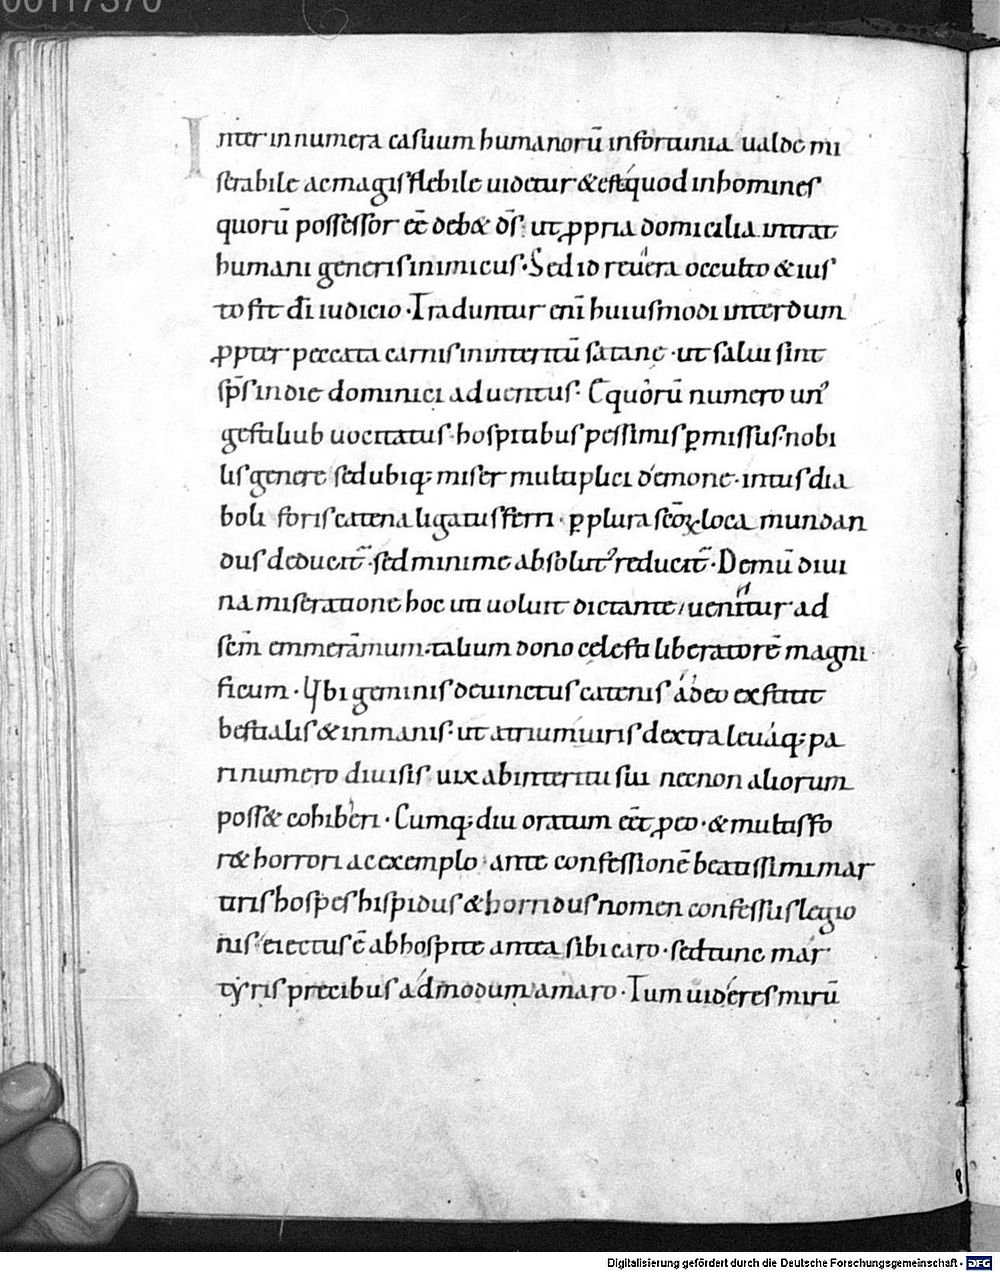 00117370
Inter innumera casuum humanorū infortunia ualde mi
serabile ac magis flebile uidetur & est quod in homines
quorū possessor eē deb& ds̄ ut ꝓpria domicilia intrat
humani generis inimicus. Sed id reuera occulto & ius
to fit dī iudicio. Traduntur enī huiusmodi interdum
ꝓpter peccata carnis in interitū satanę. ut salui sint
sp̄s in die dominici aduentus. E quorū numero un'
gestiliub uocitatus. hospitibus pessimis ꝑmissus. nobi
lis genere sed ubiq; miser multiplici demone. intus dia
boli foris catena ligatus ferri. ꝑ plura scō♃ loca mundan
dus deducit̄. sed minime absolut' reducit̄. Demū diui
na miseratione hoc uti uoluit dictante, uenitur ad
scm̄ emmerāmum. talium dono celesti liberatorē magni
ficum. Vbi geminis deuinctus catenis adeo exstitit
bestialis & inmanis. ut a trium uiris dextra leuaq; pa
ri numero diuisis uix ab interitu sui necnon aliorum
poss& cohiberi. Cumq; diu oratum eēt ꝓ eo. & multis fo
r& horrori ac exemplo. ante confessionē beatissimi mar
tiris hospes hispidus & horridus nomen confessus legio
nis. eiectus ē ab hospite antea sibi caro. sed tunc már
tẏris precibus admodum amaro. Tum uideres mirū
Digitalisierung gefördert durch die Deutsche Forschungsgemeinschaft - DFG